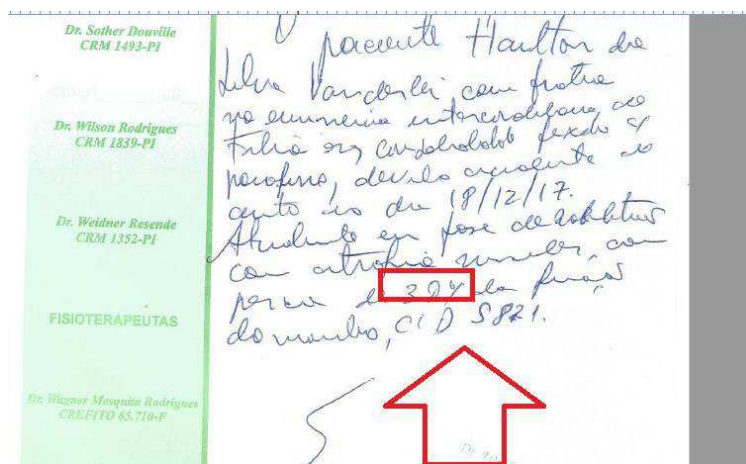 Dr. Sother Douville
CRM 1493-PI
Dr. Wilson Rodrigues
CRM 1839-PI
Dr. Weidner Resende
CRM 1352-PI
FISIOTERAPEUTAS
Dr. Wagner Mesquita Rodrigues
CREFITO 65.710-F
O paciente Hailton da
Silva Vanderlei com
na eminencia intercondiliana da
Tibia
parafuso, devido acidente de
dia 18/12/17.
em fase de
com atrofia muscular, com
perda de 30% da função
do membro, CID S821.